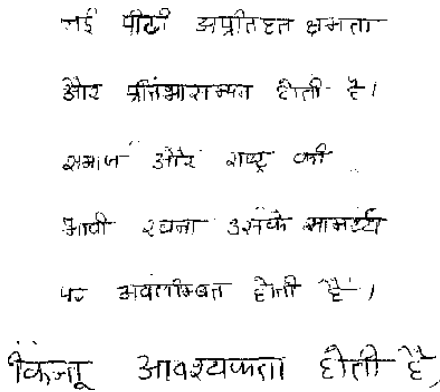 नई पीढी अप्रतिहत क्षमता
और प्रतिभासम्पन्न होती है।
समाज और राष्ट्र की
भावी रचना उसके सामर्थ्य
पर अवलम्बित होती है।
किन्तु आवश्यकता होती है,